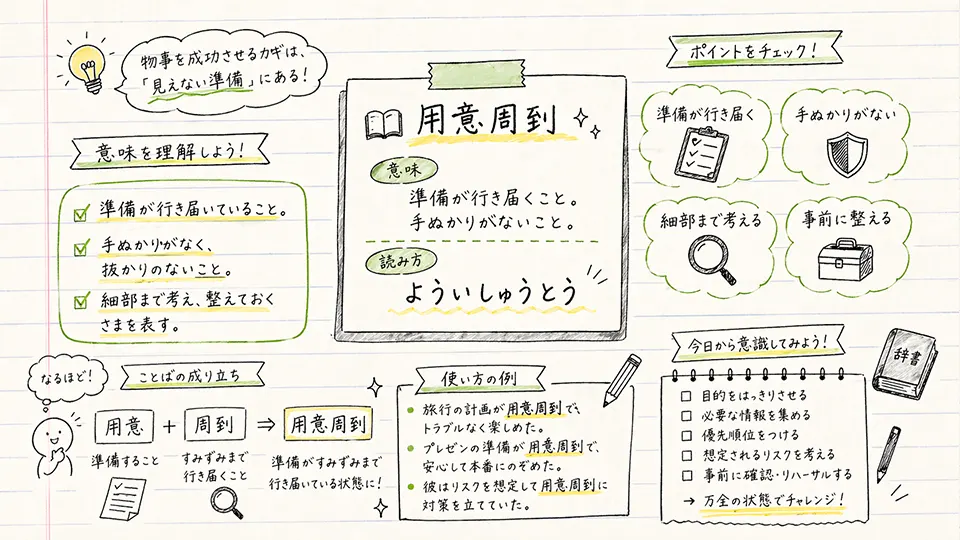 物事を成功させるカギは、
「見えない準備」にある！
意味を理解しよう！
準備が行き届いていること。
手ぬかりがなく、
抜かりのないこと。
細部まで考え、整えておく
さまを表す。
用意周到
意味
準備が行き届くこと。
手ぬかりがないこと。
読み方
よういしゅうとう
ポイントをチェック！
準備が行き届く
手ぬかりがない
細部まで考える
事前に整える
なるほど！
ことばの成り立ち
用意 + 周到 ⇒ 用意周到
準備すること
すみずみまで
行き届くこと
準備がすみずみまで
行き届いている状態に！
使い方の例
旅行の計画が用意周到で、
トラブルなく楽しめた。
プレゼンの準備が用意周到で、
安心して本番にのぞめた。
彼はリスクを想定して用意周到に
対策を立てていた。
今日から意識してみよう！
目的をはっきりさせる
必要な情報を集める
優先順位をつける
想定されるリスクを考える
事前に確認・リハーサルする
→ 万全の状態でチャレンジ！
辞書